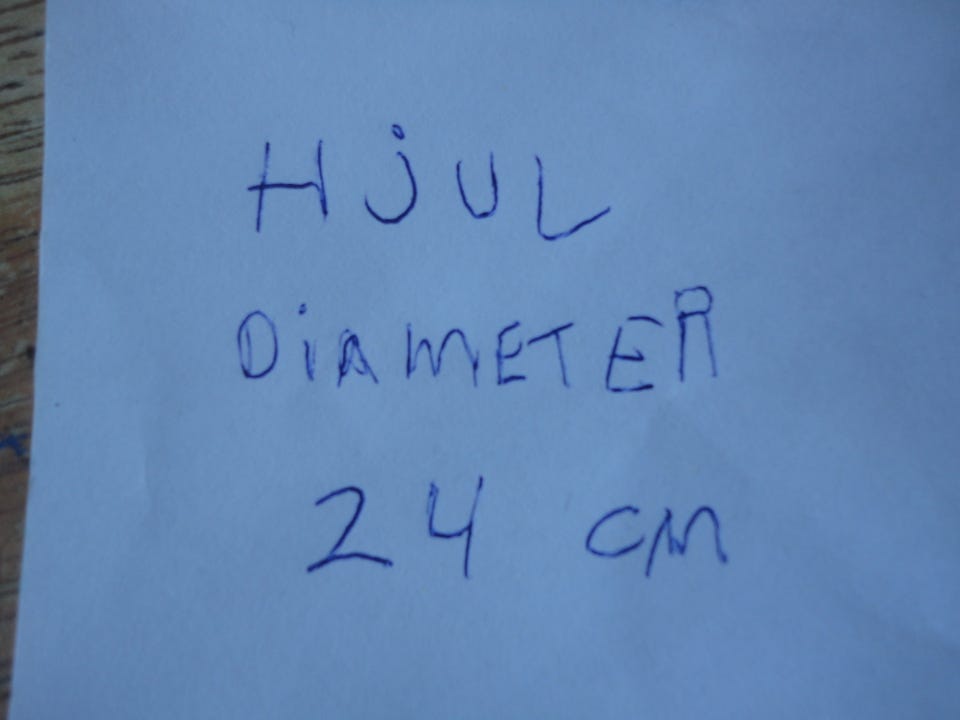 HjUL
DiAMETER
24 cm